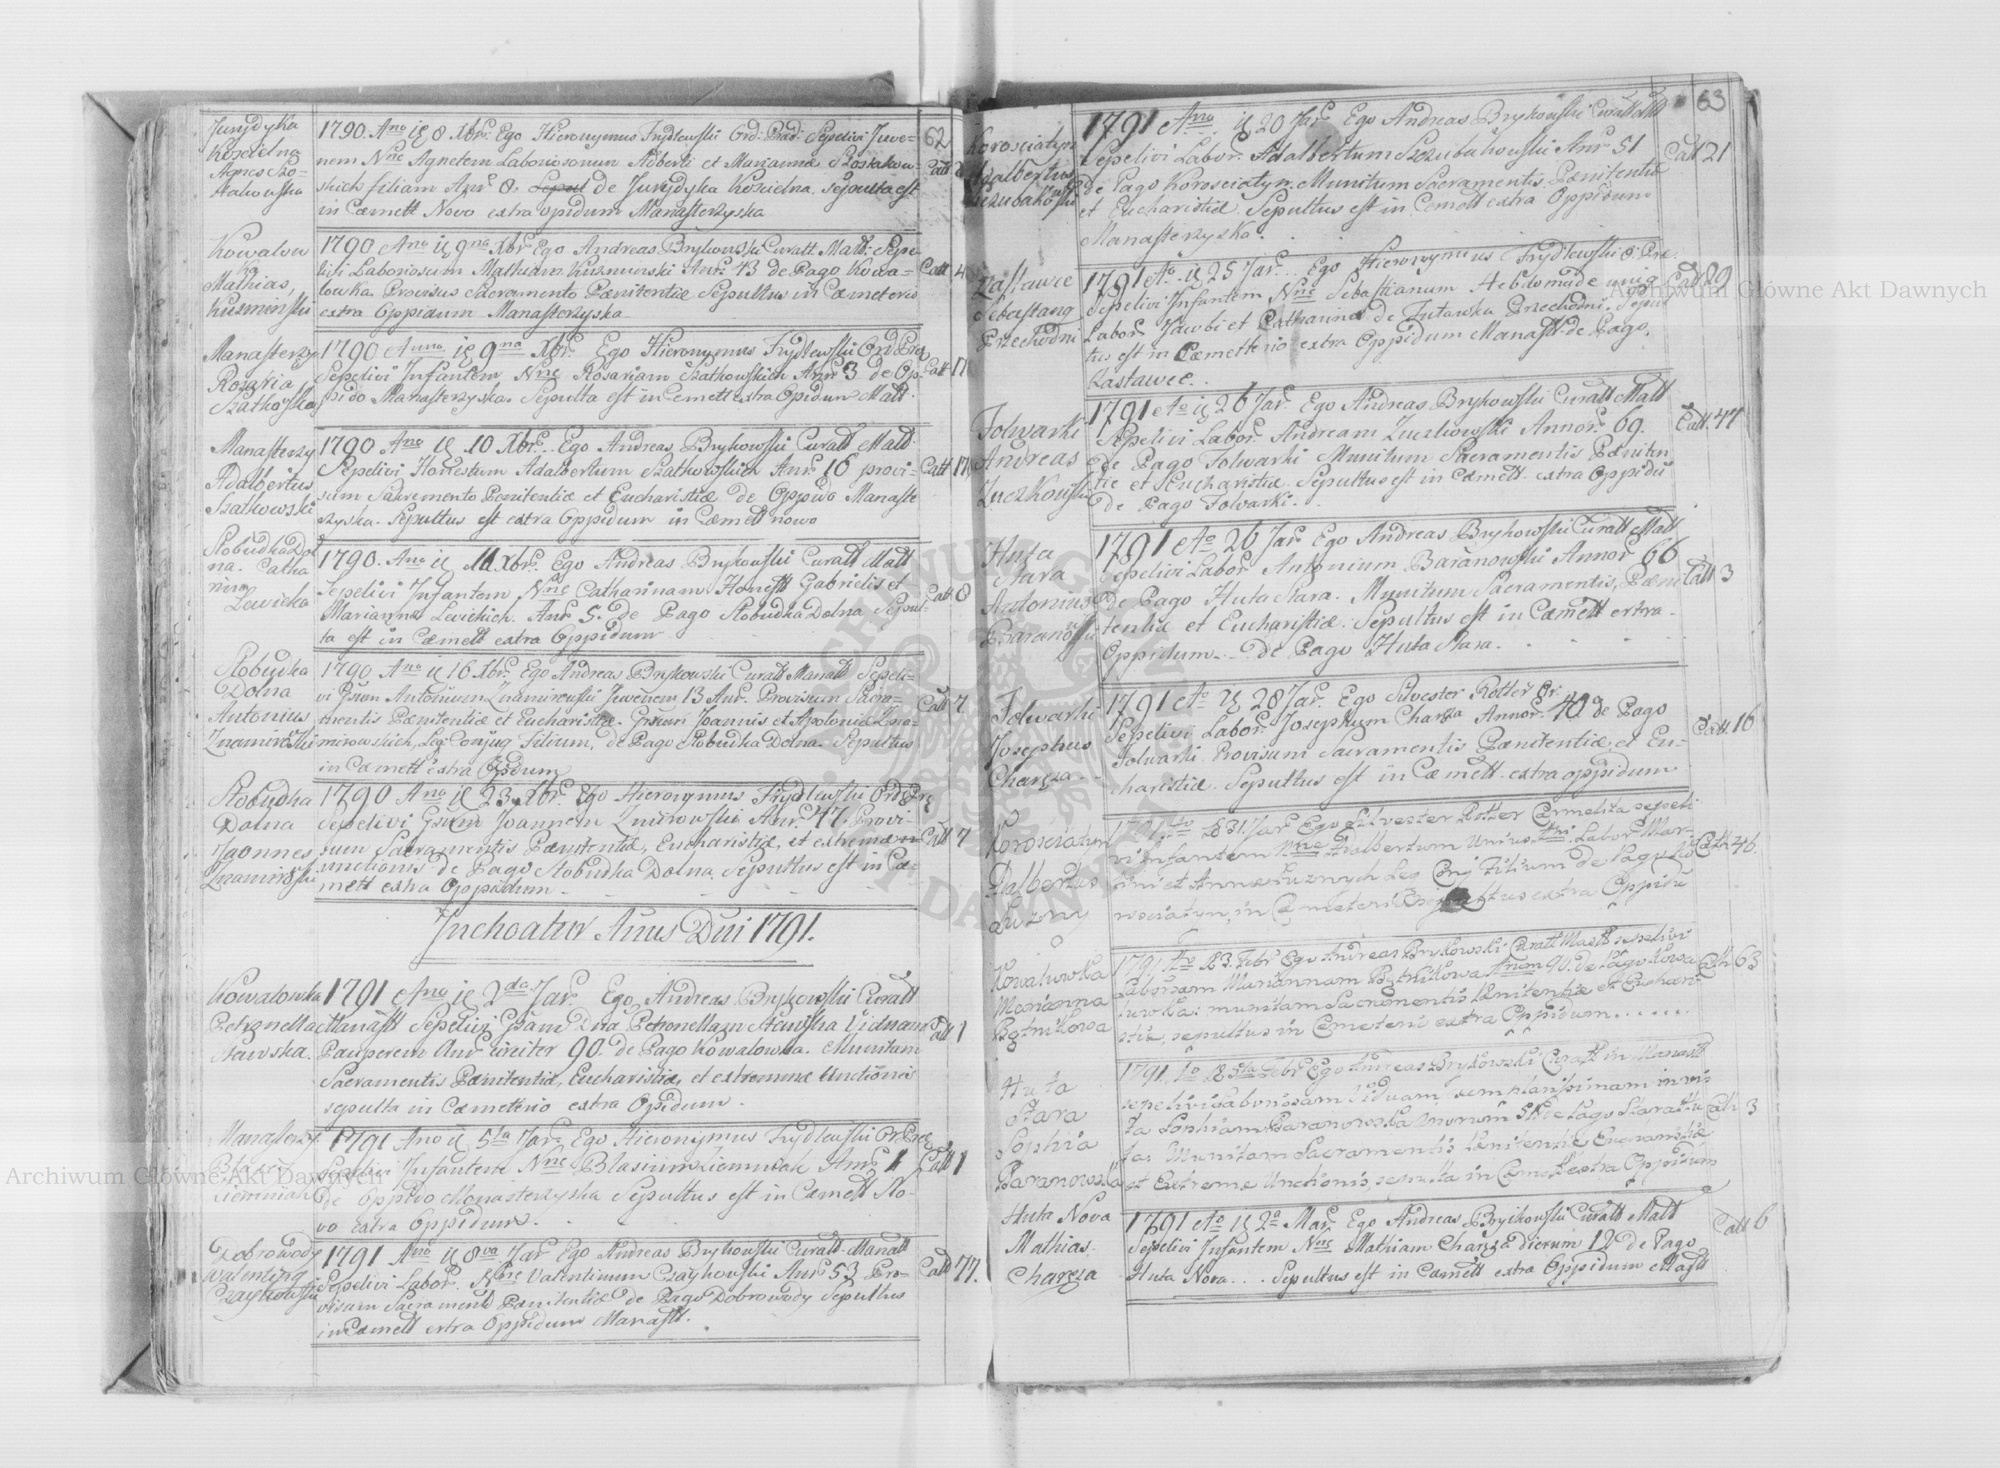 62
Jurydyka
Koscielna
Agnes Szo-
stakowska
1790. Ano ie 8 Xbr. Ego Hieronymus Frydlewski Ord: Præd: Sepelivi Juve-
nem Nne Agnetem Laboriosorum Adberti et Marianna Szostakow-
skich filiam Anr. 8. de Jurydyka Koscielna. Sepulta est
in Cæmett Novo extra opidum Manasterzyska
Kowalow
ka
Mathias
Kuzminski
1790 Ano ie 9na Xbr Ego Andreas Brykowski Curatt. Matt: Sepe-
livi Laboriosum Mathiam Kuzminski Anr. 43 de Pago Kowa-
lowka. Provisus Sacramento Pænitentiæ Sepultus in Cæmeterio
extra Oppidum Manasterzyska
Catt 4
Manasterzy
Rozaria
Szatkowska
1790 Anno ie 9na Xbr. Ego Hieronymus Frydlewski Ord Præ
Sepelivi Infantem Nne Rosariam Szatkowskich Anr 3 de Op-
pido Manasterzyska. Sepulta est in Cemett extra Opidum Matt.
Catt 17
Manasterzy
Adalbertus
Szatkowski
1790 Ano ie 10 Xbr. Ego Andreas Brykowski Curatt Matt
Sepelivi Honestum Adalbertum Szatkowskich Anr. 16 provi-
sum Sacremento Pænitentiæ et Eucharistiæ de Oppido Manaste
rzyska. Sepultus est extra Oppidum in Cæmett novo
Catt 17
Slobudka Dol
na. Catha
rina
Lewicka
1790. Ano ie 11 Xbr. Ego Andreas Brykowski Curatt Matt
Sepelivi Infantem Nne Catharinam Honestt Gabrielis et
Marianna Lewickich. Anr. 5. de Pago Slobudka Dolna Sepul-
ta est in Cæmett extra Oppidum
Catt 8
Slobudka
Dolna
Antonius
Znamirowski
1790 Ano ie 16 Xbr. Ego Andreas Brykowski Curatt Manatt Sepeli-
vi Gsum Antonium Znamirowski Juvenem 13 Anr. Provisum Sacra-
mentis Pænitentiæ et Eucharistiæ. Joannis et Apolonia Zna-
mirowskich, Leg: Conjug Filium, de Pago Slobudka Dolna. Sepultus
in Cæmett extra Opidum
Catt 7
Slobudka
Dolna
Joannes
Znamirowski
1790 Ano ie 23 Xbr. Ego Hieronymus Frydlewski Ord Præ
Sepelivi Gsum Joannem Anr. 47. Provi-
sum Sacramentis Pænitentiæ, Eucharistiæ, et extremæ
unctionis de Pago Slobudka Dolna Sepultus est in Cæ-
mett extra Oppidum
Catt 7
Inchoatur Anus Dni 1791.
Kowalowka
Petronella
Stawska.
1791 Ano ie 2da Jar. Ego Andreas Brykowski Curatt
Manastt Sepelivi Gsam Petronellam Viduam
Pauperem Anr circiter 90. de Pago Kowalowka. Munitam
Sacramentis Pænitentiæ, Eucharistiæ, et extremæ Unctionis
sepulta in Cæmetterio extra Opidum.
Catt 1
Manasterzy
Blasius
1791 Ano ie 5ta Jar. Ego Hieronymus Frydlewski Or Præ
Sepelivi Infantem Nne Blasium Anr. 1
de Oppido Manasterzyska Sepultus est in Cæmett No-
vo extra Oppidum.
Catt 1
Dobrowody
Valentinus
Czaykowski
1791 Ano ie 8va Jar Ego Andreas Brykowski Curatt Manatt
Sepelivi Labor. Nne Valentinum Czaykowski Anr. 53 Pro-
visum Sacramento Pænitentiæ de Pago Dobrowody Sepultus
in Cæmett extra Oppidum Manastt.
Catt 77.
63
Korosciatyn
Adalbertus
Szczubakowski
1791 Ano ie 20 Jar. Ego Andreas Brykowski Curatt Matt
Sepelivi Labor. Adalbertum Szczubakowski Anr. 51
de Pago Korosciatyn. Munitum Sacramentis Pænitentiæ
et Eucharistiæ. Sepultus est in Cemett extra Oppidum
Manasterzyska.
Catt 21
Zastawce
Sebastiang
Przechodni
1791 Ao. ie 25 Jar. Ego Hieronymus Frydlewski O: Præ:
Sepelivi Infantem Nne Sebastianum Hebdomadæ unig
Labor. Jacobi et Catharina de Przechodni. Sepul
tus est in Cæmetterio extra Oppidum Manastt. de Pago.
Zastawce.
Catt 89
Folwarki
Andreas
Zuczkowski
1791 Ao ie 26 Jar. Ego Andreas Brykowski Curatt Matt
Sepelivi Labor. Andream Zuczkowski Annor. 69.
de Pago Folwarki Munitum Sacramentis Pæniten
tiæ et Eucharistiæ. Sepultus est in Cæmett. extra Oppidū
de Pago Folwarki.
Catt. 47
Huta
Stara
Antonius
Baranowski
1791 Ao 26 Jar. Ego Andreas Brykowski Curatt Matt
Sepelivi Labor Antonium Baranowski Annor 66
de Pago Huta Stara. Munitum Sacramentis, Pæni
tentiæ et Eucharistiæ. Sepultus est in Cæmett extra
Oppidum. de Pago Huta Stara.
Catt 3
Folwarki
Josephus
Charęza
1791 Ao ie 28 Jar. Ego Silvester Rotter Or.
Sepelivi Labor. Josephum Charęza Annor. 40. de Pago
Folwarki. Provisum Sacramentis Pænitentiæ, et Eu-
charistiæ. Sepultus est in Cæmett. extra oppidum
Catt. 16
Korosciatyn
Dalbertus
Luzny
1791. Ao. D 31. Jar. Ego Silvester Rotter Carmelita sepeli
vi Infantem Nne Adalbertum Unius Ani. Labor Mar-
tini et Anna Luznych Leg Conj Filium de Pago Ko
rosciatyn, in Cemeteri Sepultus extra Oppidū
Catt 46.
Kowaluwka
Marianna
Bętnikowa
1791. Ao D 3. Febr Ego Andreas Brykowski Curatt Mastt sepelivi
Laboriosam Mariannam Bętnikowa Anom 90. de Pago Kowa
luwka: munitam Sacramentis Penitentiæ et Euchari
stiæ, sepultus in Cemeterio extra Oppidum.......
Catt 63
Huta
Stara
Sophia
Baranowska
1791. Ao D 5ta Febr Ego Andreas Brykowski Curatt in Manastt
sepelivi Laboriosam Viduam exemplarissimam in vi
ta Sophiam Baranowska Anorum 58 de Pago Stara Hu
ta: Munitam Sacramentis Penitentiæ Eucharistiæ
et Extreme Unctionis, sepulta in Cemett extra Oppidum
Catt 3
Huta Nova
Mathias.
Charęza
1791 Ao ie 2a Mar. Ego Andreas Brykowski Curatt Matt
Sepelivi Infantem Nne Mathiam Charęza dierum 12 de Pago
Huta Nova... Sepultus est in Cæmett extra Oppidum Mastt
Catt 6
Archiwum Główne Akt Dawnych
Archiwum Główne Akt Dawnych